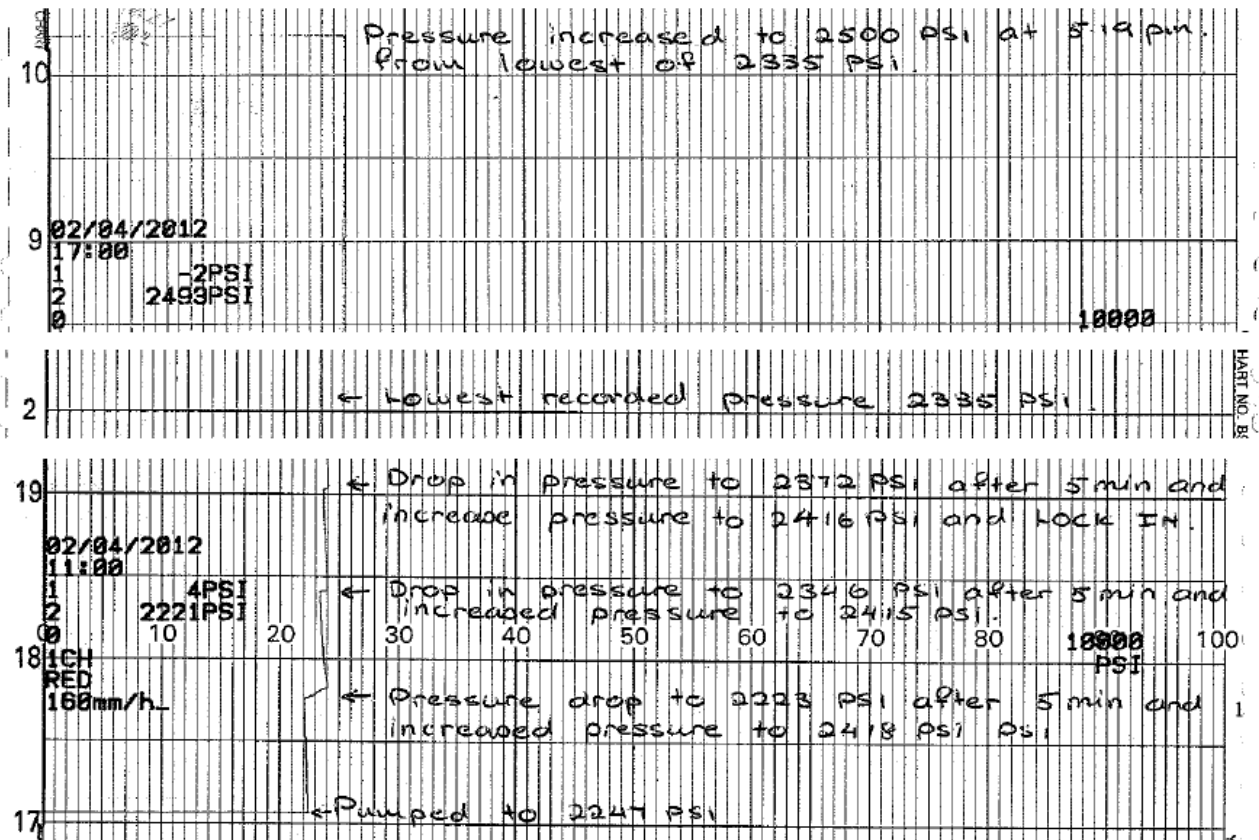 Pressure increased to 2500 PSi at 5:19 pm.
from lowest of 2335 PSi.
10
02/04/2012
9
17:00
1 -2PSI
2 2493PSI
0 10000
2 ← Lowest recorded pressure 2335 PSi.
HART NO.
19 ← Drop in pressure to 2372 PSi after 5 min and
increase pressure to 2416 PSi and LOCK IN.
02/04/2012
11:00
1 4PSI
← Drop in pressure to 2346 PSi after 5 min and
2 2221PSI
increased pressure to 2415 PSi.
0 10 20 30 40 50 60 70 80 10000 100
18 1CH PSI
RED
160mm/h_
← Pressure drop to 2223 PSi after 5 min and
increased pressure to 2418 PSi PSi
17 ← Pumped to 2247 PSi